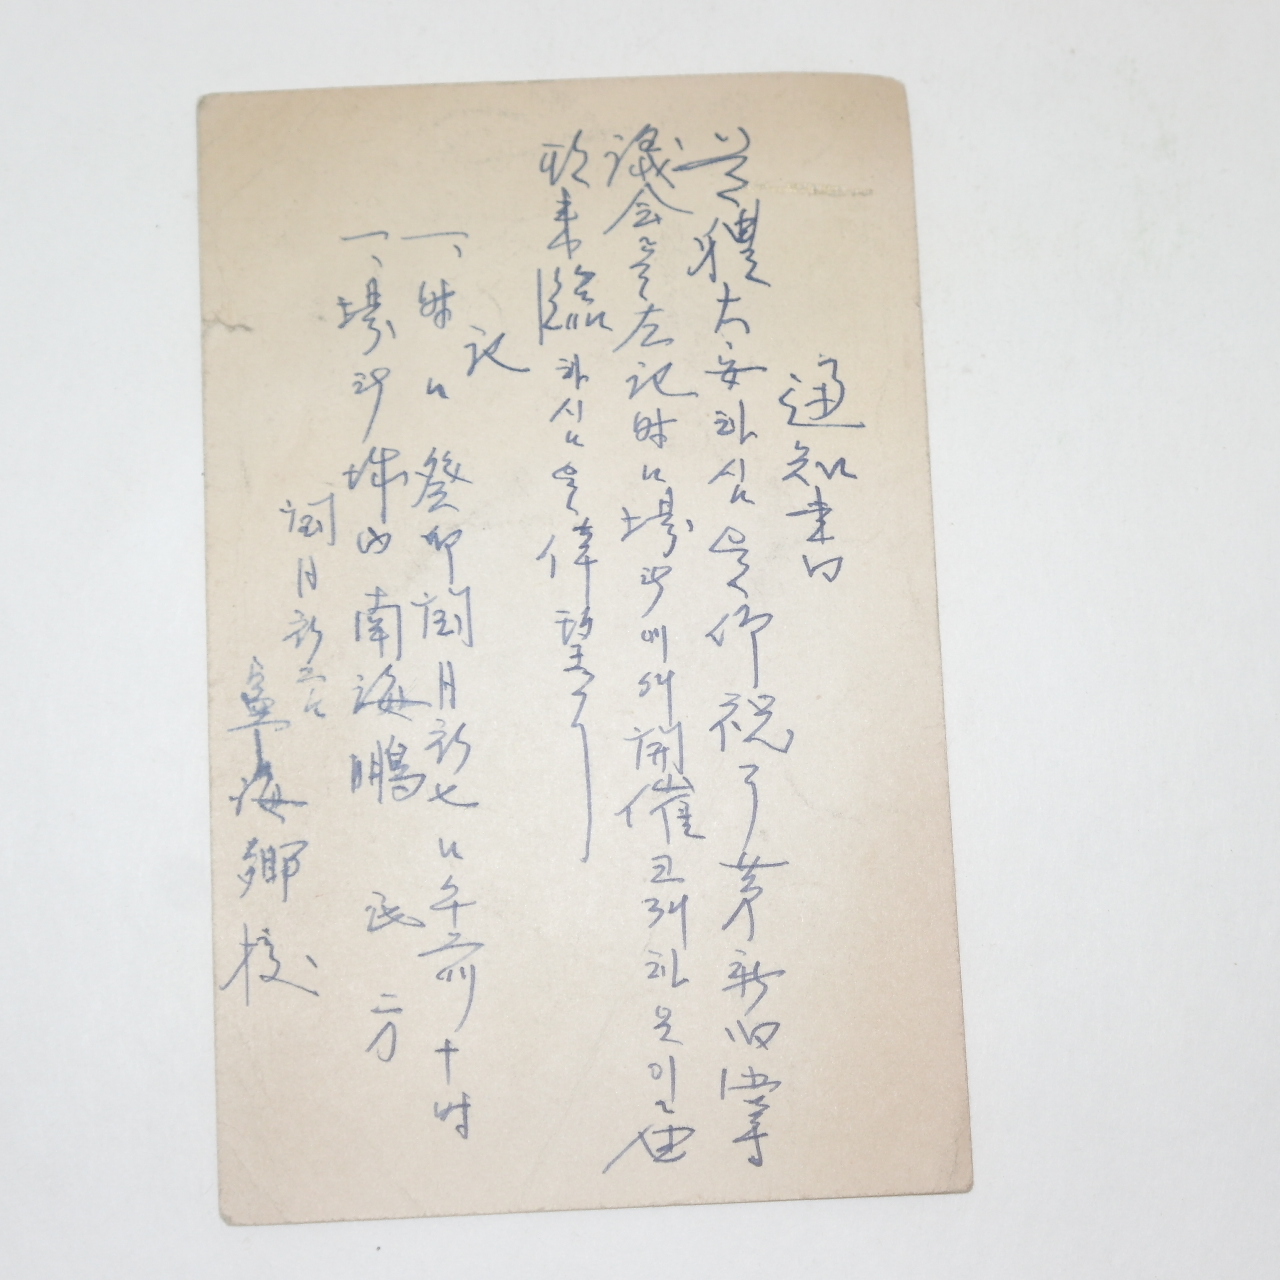 通知書
體大安하심을仰祝 第新旧掌
議会를左記時日場所에서開催코저하오니
來臨하심을 望
記
一、時日 癸卯閏月初七日午前十時
一、場所 城内南海鵬 氏 方
閏月初 日
海鄕校